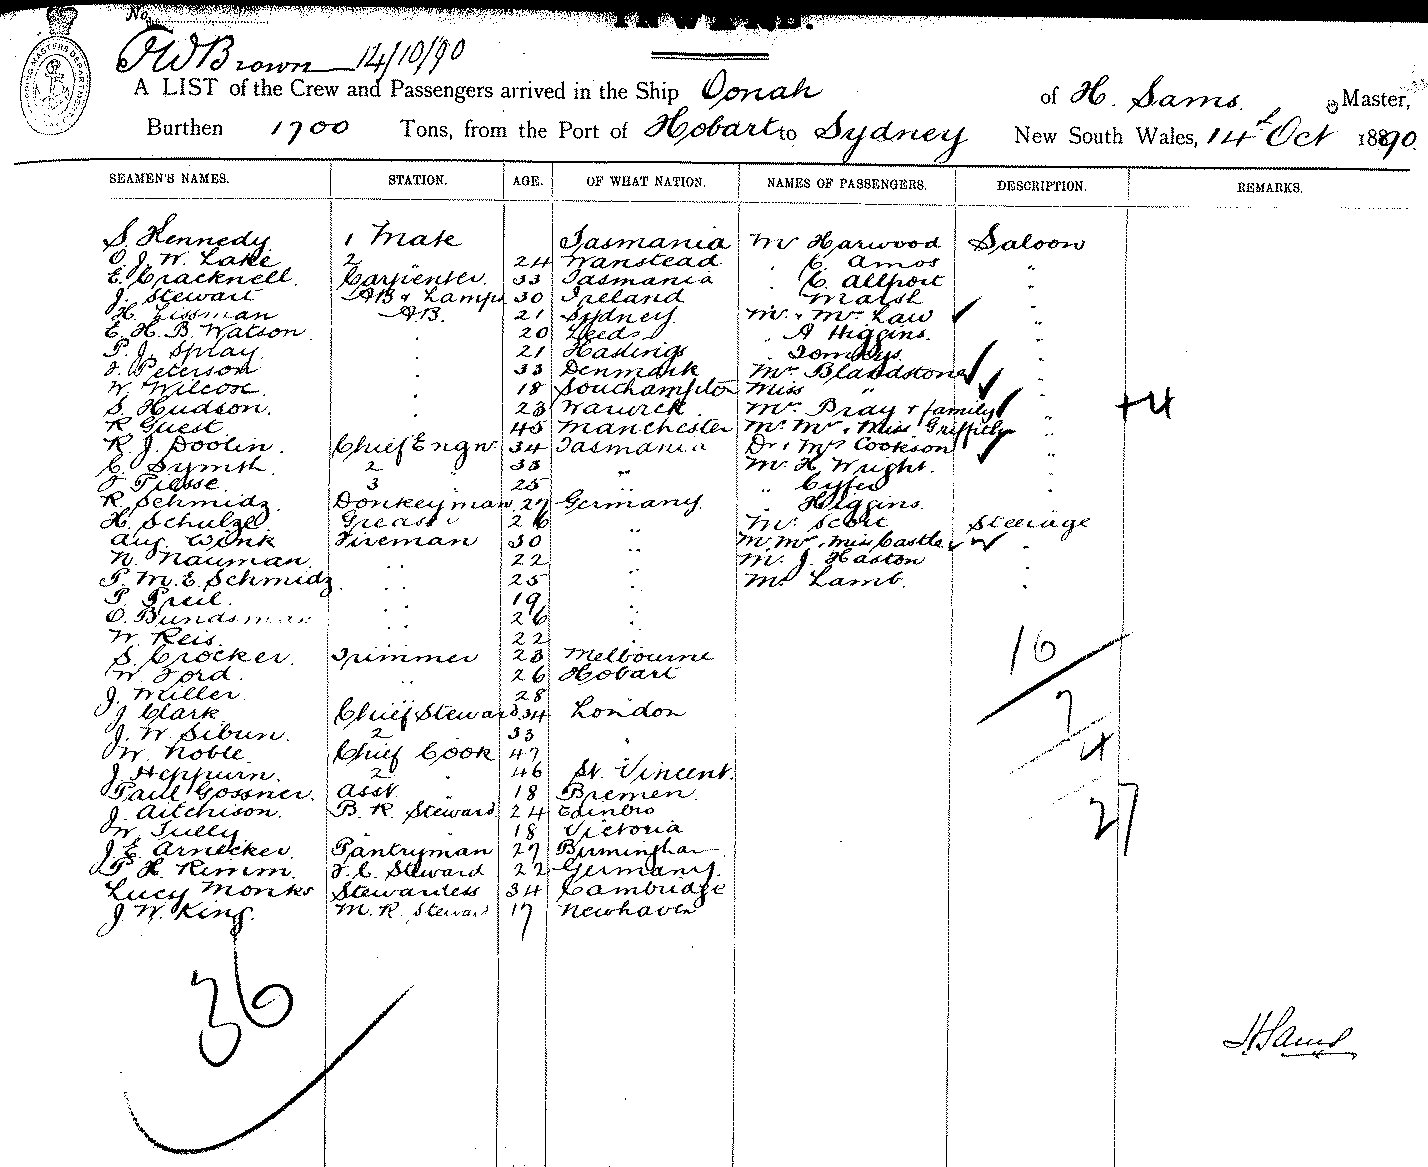 No.
INWARD.
F W Brown 14/10/90
A LIST of the Crew and Passengers arrived in the Ship Oonah of H. Sams. Master,
Burthen 1700 Tons, from the Port of Hobart to Sydney New South Wales, 14th Oct 1890
SEAMEN'S NAMES. STATION. AGE. OF WHAT NATION. NAMES OF PASSENGERS. DESCRIPTION. REMARKS.
S. Kennedy 1 Mate Tasmania Mr Harwood Saloon
O. J. W. Lake 2 24 Wanstead " C. Amos "
E. Cracknell. Carpenter. 33 Tasmania " C. Allport "
J. Stewart AB & Lamps 30 Ireland Marsh "
H. Lissman AB. 21 Sydney Mr & Mrs Law "
E. H. B. Watson " 20 Leeds " A Higgins. "
P. J. Spray. " 21 Hastings "
J. Peterson " 33 Denmark Mrs Blandstone "
W. Wilcox. " 18 Southampton Miss " "
S. Hudson. " 23 Warwick Mrs Bray & family "
R Guest " 45 Manchester Mr Mrs & Miss Griffiths "
R. J. Doolin. Chief Engnr 34 Tasmania Dr & Mrs Cookson "
C. Symth. 2 " 33 " Mr H. Wright. "
J. Piesse. 3 " 25 " "
R. Schmidz Donkeyman 27 Germany. " Higgins. "
H. Schulze Greaser 26 " Mr Scott Steerage
Aug. Wenk Fireman 30 " Mr Mrs & Miss Castle "
N. Nauman. " 22 " Mr. J. Haston "
P. M. E. Schmidz " 25 " Mr Lamb. "
P. Preil. " 19 "
O. Bundsman " 26 "
W. Reis. " 22 "
S. Crocker. Trimmer 23 Melbourne
W. Ford. " 26 Hobart
J. Miller. 28
J. Clark Chief Steward 34 London
J. W. Sibun. 2 33 "
W. Noble. Chief Cook 47
J. Heppurn. 2 " 46 St. Vincent.
Paul Gossner. Asst " 18 Bremen.
J. Aitchison. B. R. Steward 24 Edinbro
W. Tully 18 Victoria
J. E. Arnecker. Pantryman 27 Birmingham
P. H. Rimm. F. C. Steward 22 Germany.
Lucy Monks Stewardess 34 Cambridge
J. W. King. M. R. Steward 17 Newhaven
+4
16
7
4
27
36
H Sams